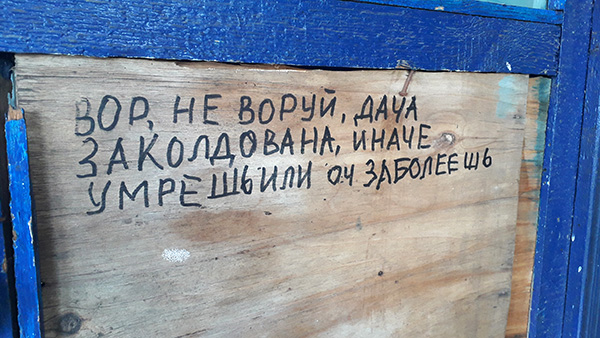 ВОР, НЕ ВОРУЙ, ДАЧА
ЗАКОЛДОВАНА, ИНАЧЕ
УМРЕШЬ ИЛИ ОЧ ЗАБОЛЕЕШЬ